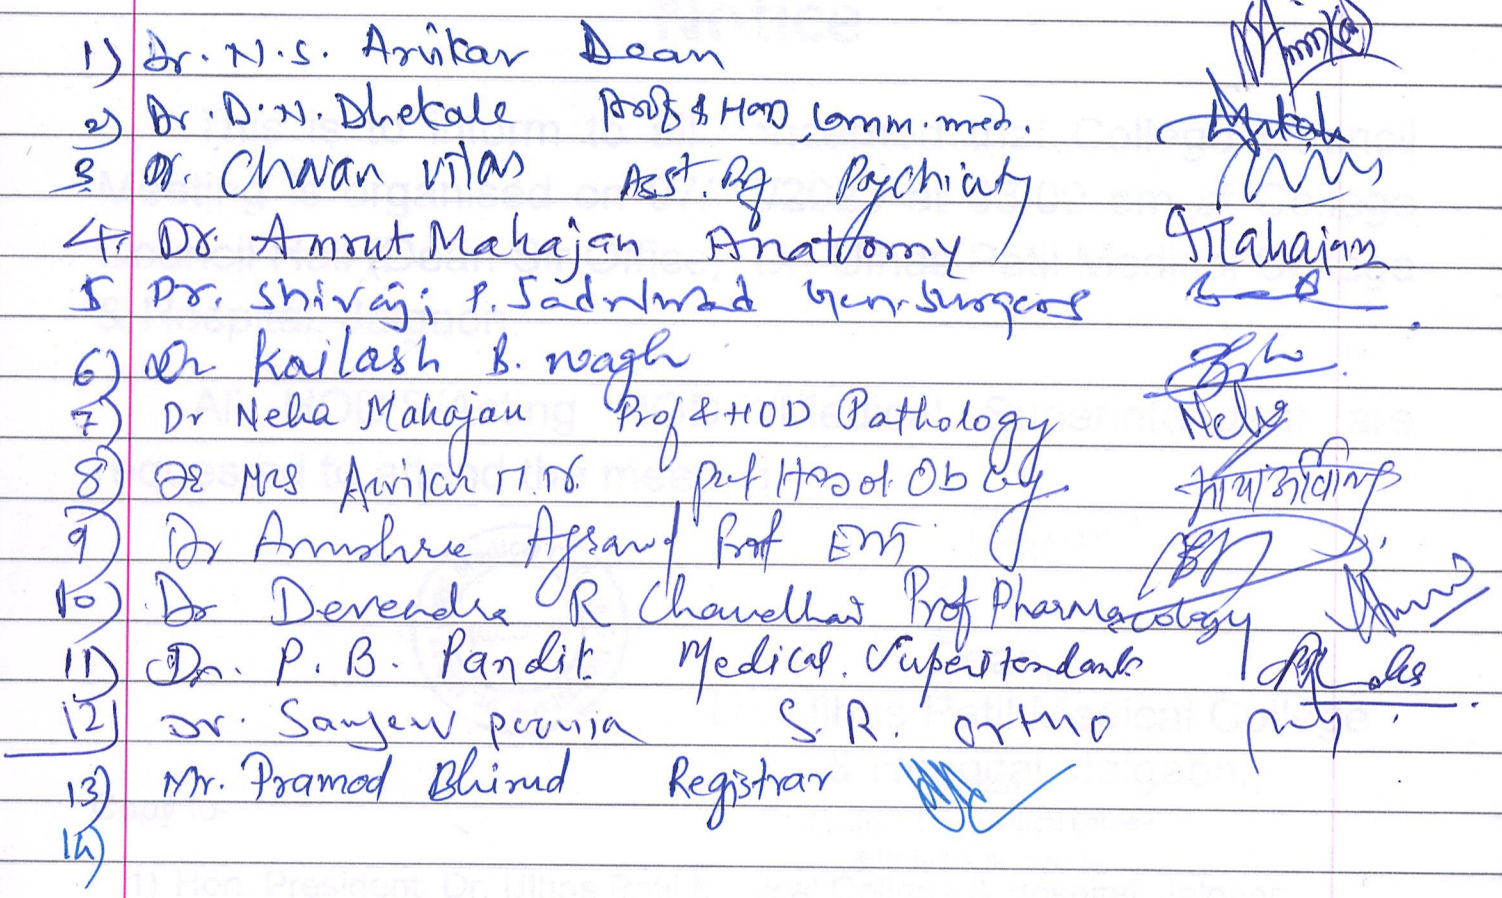 1) Dr. N.S. Arvikar Dean
2) Dr. D.N. Dhekale Prof & HOD, Comm. med.
3 Dr. Chavan Vilas Asst. Prof Psychiaty
4. Dr. Amrut Mahajan Anatomy Mahajan
5 Dr. Shivaji P. Gen. Surgeos
6) Dr Kailash B. Wagh
7) Dr Neha Mahajan Prof & HOD Pathology Neha
8) Dr Mrs Arvikar Prof HOD of Ob Gy.
9) Dr Anushree Prof ENT
10) Dr Devendra R Chaudhari Prof Pharmacology
11) Dr. P. B. Pandit Medical. Superitendant
12) Dr. Sanjeev S.R. Ortho
13) Mr. Pramod Bhirud Registrar
14)